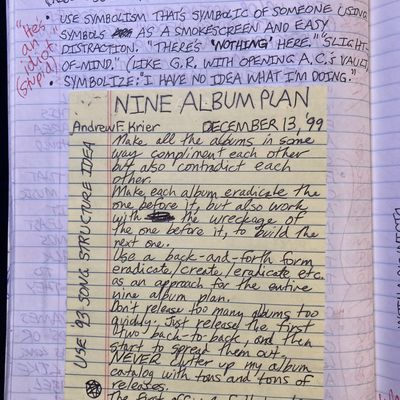 • USE SYMBOLISM THAT'S SYMBOLIC OF SOMEONE USING
SYMBOLS AS A SMOKESCREEN AND EASY
DISTRACTION. "THERE'S "NOTHING" HERE." "SLIGHT-
OF-MIND." (LIKE G.R. WITH OPENING A.C.'s VAULT)
• SYMBOLIZE: "I HAVE NO IDEA WHAT I'M DOING."
"He's
an
idiot"
(stupid)
NINE ALBUM PLAN
Andrew F. Krier DECEMBER 13, '99
Make all the albums in some
way compliment each other
but also contradict each
other.
Make each album eradicate the
one before it, but also work
with the wreckage of
the one before it, to build the
next one.
Use a back-and-forth form,
eradicate/create/eradicate etc.
as an approach for the entire
nine album plan.
Don't release too many albums too
quickly. Just release the first
two back-to-back, and then
start to spread them out.
NEVER clutter up my album
catalog with tons and tons of
releases.
USE '93 SONG STRUCTURE IDEA